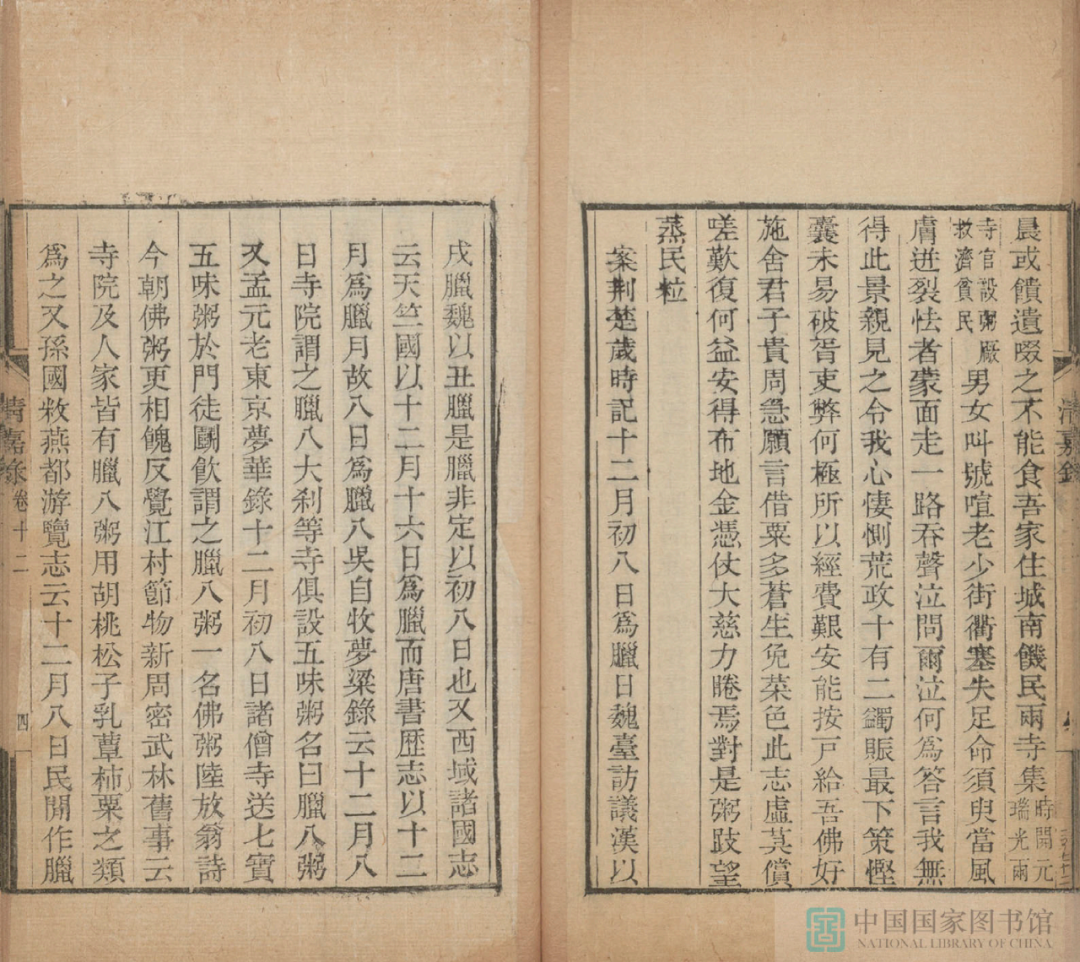 晨或饋遺啜之不能食吾家住城南饑民兩寺集時開元瑞光兩
寺官設粥厰救濟貧民男女叫號喧老少街衢塞失足命須臾當風
膚迸裂怯者蒙面走一路吞聲泣問爾泣何爲答言我無
得此景親見之令我心悽惻荒政十有二蠲賑最下策慳
囊未易破胥吏弊何極所以經費艱安能按戸給吾佛好
施舍君子貴周急願言借粟多蒼生免菜色此志虛莫償
嗟歎復何益安得布地金憑仗大慈力睠焉對是粥跂望
蒸民粒
案荆楚歲時記十二月初八日爲臘日魏臺訪議漢以
戌臘魏以丑臘是臘非定以初八日也又西域諸國志
云天竺國以十二月十六日爲臘而唐書歴志以十二
月爲臘月故八日爲臘八吳自牧夢梁錄云十二月八
日寺院謂之臘八大刹等寺俱設五味粥名曰臘八粥
又孟元老東京夢華錄十二月初八日諸僧寺送七寳
五味粥於門徒鬬飲謂之臘八粥一名佛粥陸放翁詩
今朝佛粥更相餽反覺江村節物新周密武林舊事云
寺院及人家皆有臘八粥用胡桃松子乳蕈柿栗之類
爲之又孫國敉燕都游覽志云十二月八日民間作臘
清嘉錄
清嘉錄 卷十二
四
中国国家图书馆
NATIONAL LIBRARY OF CHINA